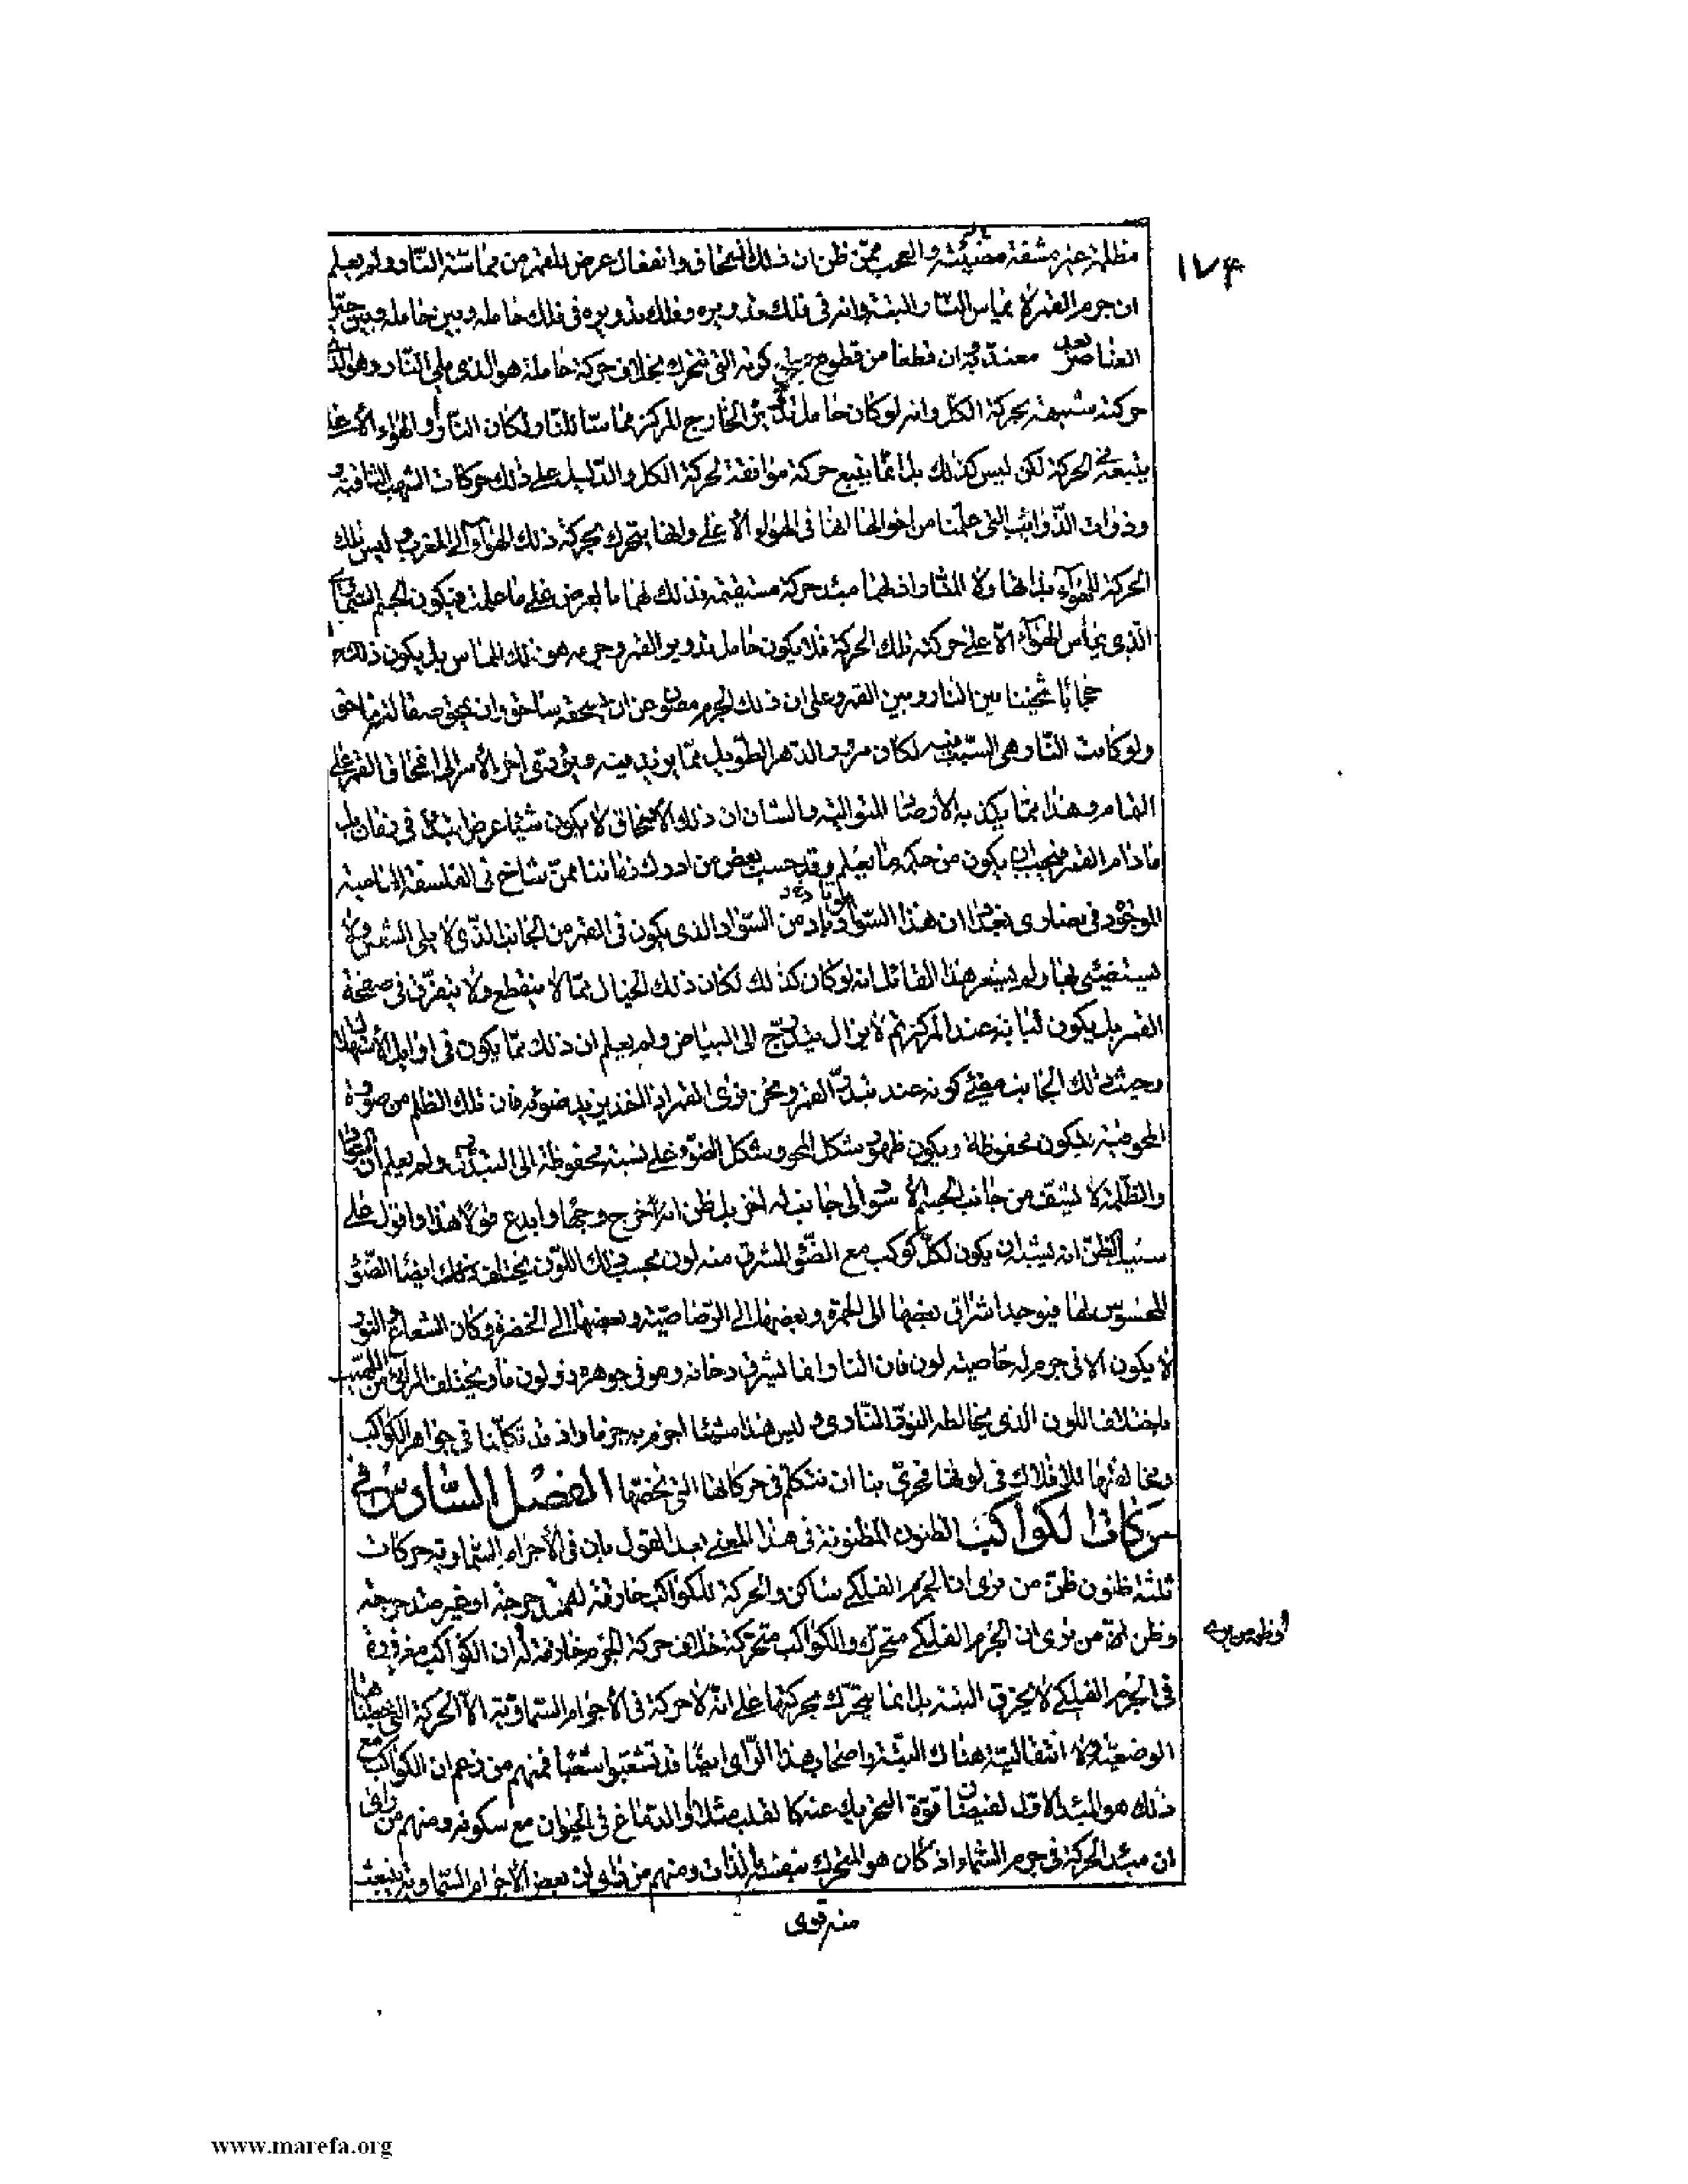 ١٧۴
مظلمة غير مشفة مضيئة والعجب ممن ظن ان ذلك انمحاق وانفعال عرض للقمر من مماسة النار ولم يعلم
ان جرم القمر لا يماس النار البتة وانه فى فلك تدويره وفلك تدويره فى فلك حامله وبين حامله وبين حيز
العناصر بعد معتد به وان قطعا من كونه التى تتحرك بخلاف حركة حامله هو الذى يلى النار وهو الذى
حركته شبيهة بحركة الكل وانه لو كان حامل تدويره الخارج المركز مماسا للنار لكان النار والهواء الأعلى
يتبعه فى الحركة لكن ليس كذلك بل انما يتبع حركة موافقة لحركة الكل والدليل على ذلك حركات الشهب الثاقبة
وذوات الذوايب التى علمنا من احوالها انها فى الهواء الأعلى وانها يتحرك بحركة ذلك الهواء الى المغرب وليس تلك
الحركة للهواء بذاتها ولا للنار اذ لهما مبدء حركة مستقيمة فذلك لهما بالعرض على ما علمت فيكون الجرم السمائى
الذى يماس الهواء الأعلى حركته تلك الحركة فلا يكون حامل تدوير القمر وجرمه هو ذلك المماس بل يكون ذلك
حجابا ثخينا بين النار وبين القمر وعلى ان ذلك الجرم مصون عن ان يسحقه ساحق وان يمحق صفاله ماحق
ولو كانت النار هى السبب فيه لكان مرور الدهر الطويل مما يزيد فيه ويؤدى اخر الأمر الى انمحاق القمر على
التمام وهذا مما يكذبه الأرصاد المتوالية والشان ان ذلك الانمحاق لا يكون شيئا عرض ابتداء فى زمان بل
ما دام القمر فيجب ان يكون من حكمه ما يعلم وقد حسب بعض من ادرك زماننا ممن شاخ فى الفلسفة الناحية
الموجود فى نصارى بغداد ان هذا السواد من السواد الذى يكون فى القمر من الجانب الذى لا يلى الشمس ولا
يستضىء بها ولم يشعر هذا القائل انه لو كان كذلك لكان ذلك الخيال مما لا ينقطع ولا يتفرق فى صفحة
القمر بل يكون عند المركز ثم لا يزال يتدرج الى البياض ولم يعلم ان ذلك مما يكون فى اوايل الأستهلال
وحيث ذلك الجانب كونه عند تبدر القمر ونحن نرى القمر اذ اخذ يزيد ضوئه فان تلك الظلم من صورة
المحو فيه يكون محفوظة ويكون ظهور شكل المحو وشكل الضوء على نسبة محفوظة الى التبدر ولم يعلم ان السواد
والظلمة لا يشف من جانب الجسم الأسود الى جانب له اخر بل ظن انه اخرج وجها وابدع قولا هذا واقول على
سبيل الظن انه يشبه ان يكون لكل كوكب مع الضوء المشرق منه لون بحسب ذلك اللون يختلف كذلك ايضا الضوء
المحسوس لها فيوجد اشراق بعضها الى الحمرة وبعضها الى الرصاصية وبعضها الى الخضرة وكان الشعاع والنور
لا يكون الا فى جرم له خاصية لون فان النار انما يشرق دخانه وهو فى جوهره ذو لون ما ويختلف المرئى من اللهيب
باختلاف اللون الذى يخالطه النور النارى وليس هذا شيئا اجزم به جزما واذ قد تكلمنا فى جواهر الكواكب
ومخالفتها للافلاك فى لونها فحرى بنا ان نتكلم فى حركاتها التى تخصها الفصل السادس فى
حركات الكواكب الظنون المظنونة فى هذا المعنى بعد القول بان فى الأجرام السماوية حركات
ثلثة ظنون ظن من يرى ان الجرم الفلكى ساكن والحركة للكواكب خارقة له متدحرجة او غير متدحرجة
وظن من يرى ان الجرم الفلكى متحرك والكواكب متحركة خلاف حركة الجرم خارقة له ان الكواكب مغروزة
وظن من يرى
فى الجرم الفلكى لا يخرق البتة بل انما يتحرك بحركتها على انه لا حركة فى الأجرام السماوية الا الحركة التى هى
الوضعية ولا انتقالية هناك البتة واصحاب هذا الراى ايضا قد تشعبوا شعبا فمنهم من زعم ان الكواكب مع
ذلك هو المبدء الاول لفيضان قوة التحريك عنه كالقلب مثلا او الدماغ فى الحيوان مع سكونه ومنهم من راى
ان مبدء الحركة فى جرم السماء اذ كان هو المتحرك بنفسه بالذات ومنهم من راى ان بعض الأجرام السماوية ينبعث
منه قوى
www.marefa.org